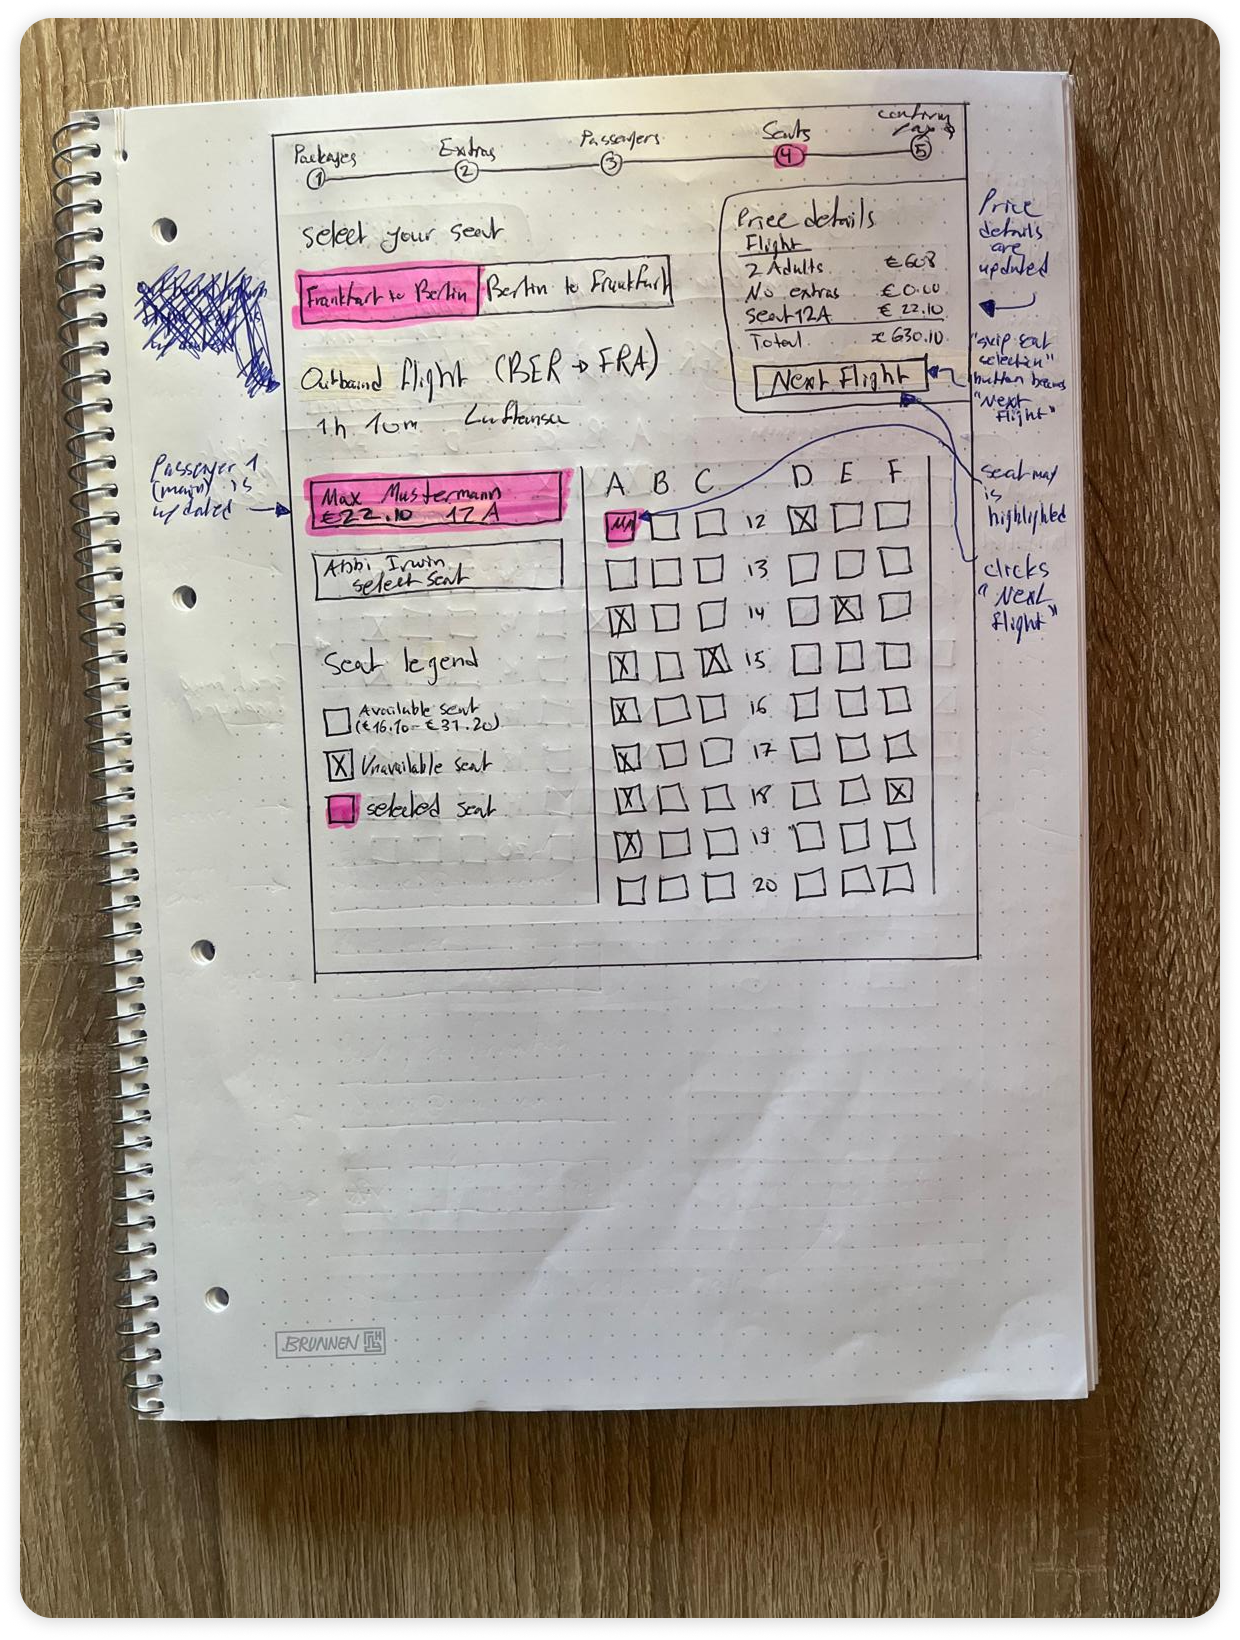 Packages
1
Extras
2
Passengers
3
Seats
4
confirm
pay $
5
select your seat
Frankfurt to Berlin
Berlin to Frankfurt
Outbound flight (BER → FRA)
1h 10m Lufthansa
Price details
Flight
2 Adults €608
No extras €0.00
Seat 12A € 22.10
Total € 630.10
Next Flight
Price
details
are
updated
"skip seat
selection"
button becomes
"Next
flight"
seat map
is
highlighted
clicks
"Next
flight"
Passenger 1
(main) is
updated
Max Mustermann
€22.10 12A
Abbi Irwin
select seat
Seat legend
Available seat
(€16.10 - €31.20)
X Unavailable seat
selected seat
A B C D E F
MM 12 X
13
X 14 X
X X 15
X 16
X 17
X 18 X
X 19
20
BRUNNEN